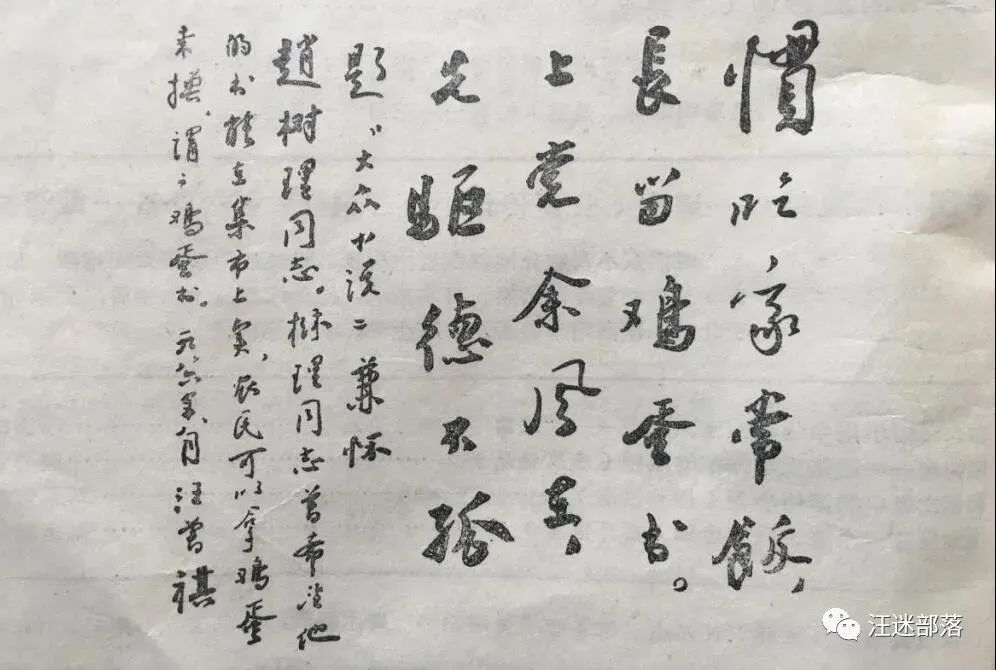 惯吃家常饭，
長留鸡蛋书。
上党余风在，
先驱德不孤
题《大众十说》兼怀
趙树理同志。树理同志曾希望他
的书能在集市上卖，农民可以拿鸡蛋
来换，谓之鸡蛋书。一九八六年 月 汪曾祺
汪迷部落